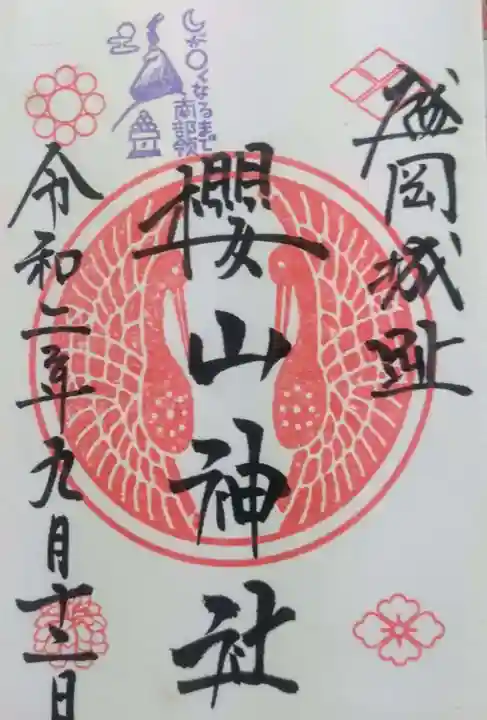 盛岡城趾
櫻山神社
令和二年九月十二日
南部領
なるまで